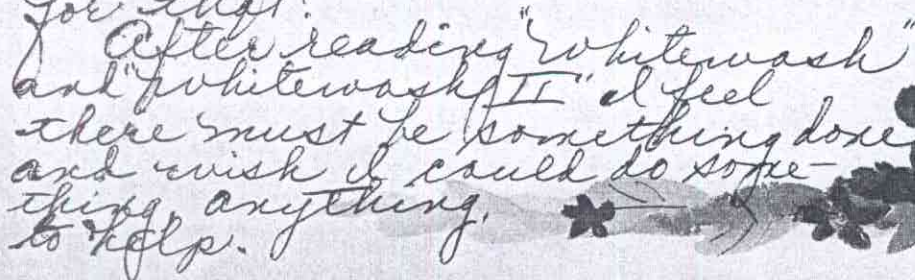 for that.
After reading "Whitewash"
and "Whitewash II" I feel
there must be something done
and wish I could do some-
thing, anything,
to help.